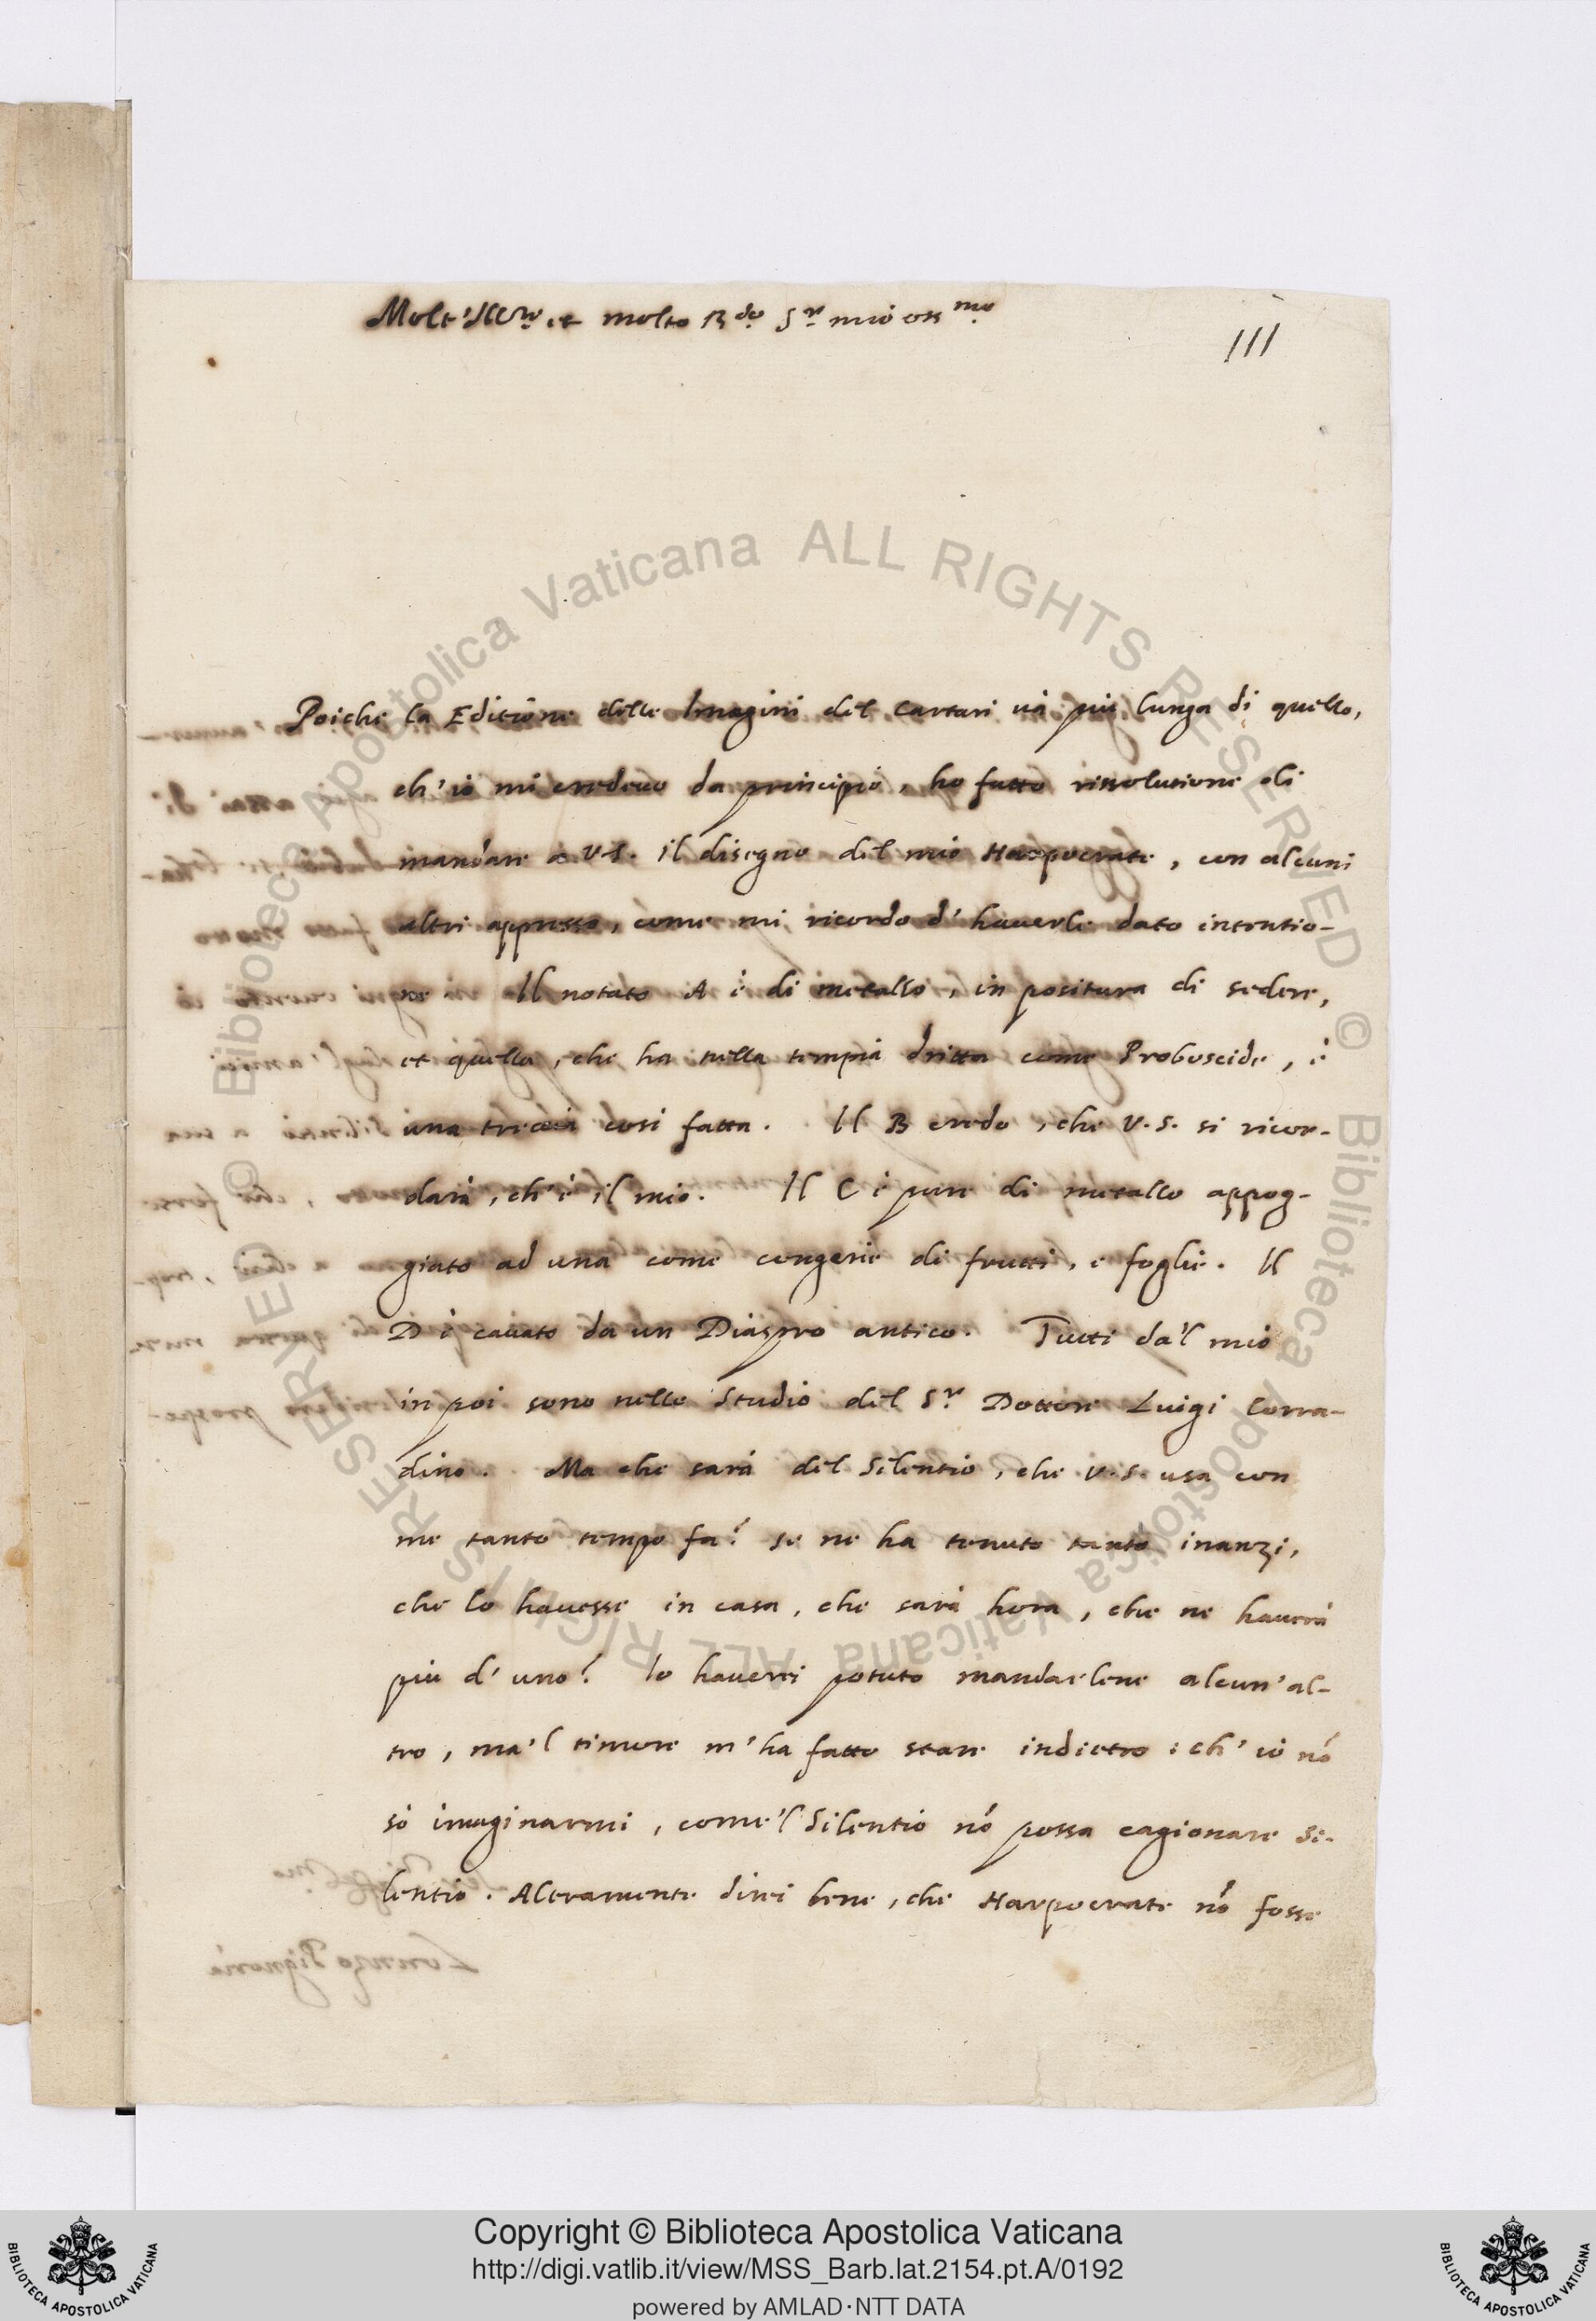 Molt'Ill.re et molto R.do S.r mio oss.mo
111
Poiche la Editione delle Imagini del Cartari và più lunga di quello,
ch'io mi credevo da principio, ho fatto rissolutione di
mandare a V.S. il disegno del mio Harpocrate, con alcuni
altri appresso, come mi ricordo d'hauerle dato intentio-
ne. Il notato A è di metallo, in positura di sedere,
et quella, che ha nella tempia dritta come Proboscide, è
una treccia cosi fatta. Il B credo, che V.S. si ricor-
darà, ch'è il mio. Il C è pure di metallo appog-
giato ad una come congerie di frutti, e foglie. Il
D è cauato da un Diaspro antico. Tutti da'l mio
in poi sono nello Studio del S.r Dottore Luigi Corra-
dino. Ma che sarà del Silentio, che V.S. usa con
me tanto tempo fa? se ne ha tenuto tanto inanzi,
che lo hauesse in casa, che sarà hora, che ne hauerà
più d'uno? Io hauerei potuto mandarlene alcun'al-
tro, ma'l timore m'ha fatto stare indietro: ch'io nó
sò imaginarmi, come'l Silentio nó possa cagionare Si-
lentio. Altramente direi bene, che Harpocrate nó fosse
Lorenzo Pignoria
© Biblioteca Apostolica Vaticana ALL RIGHTS RESERVED
© Biblioteca Apostolica Vaticana ALL RIGHTS RESERVED
Copyright © Biblioteca Apostolica Vaticana
http://digi.vatlib.it/view/MSS_Barb.lat.2154.pt.A/0192
powered by AMLAD·NTT DATA
BIBLIOTECA APOSTOLICA VATICANA
BIBLIOTECA APOSTOLICA VATICANA